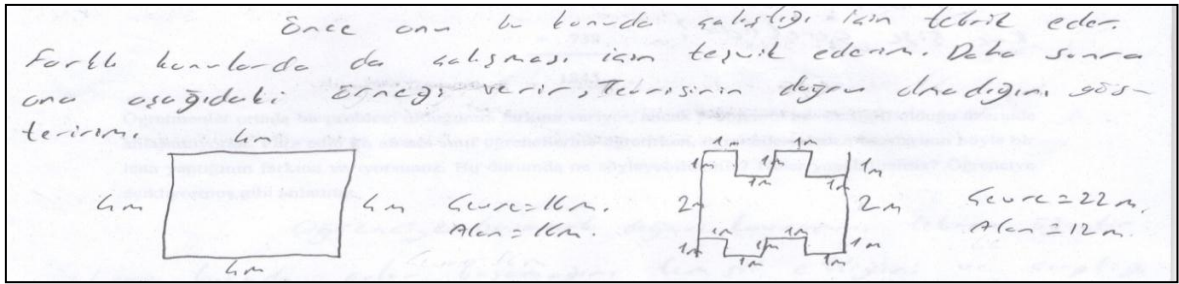 Önce onu bu konuda çalıştığı için tebrik eder.
Farklı konularda da çalışması için teşvik ederim. Daha sonra
ona aşağıdaki örneği verir, teorisinin doğru olmadığını gös-
teririm.
4m
4m
4m
Çevre=16m.
Alan=16m.
4m
1m 1m
1m 1m 1m
1m
2m
2m
Çevre=22m.
Alan=12m.
1m 1m
1m 1m
1m 1m